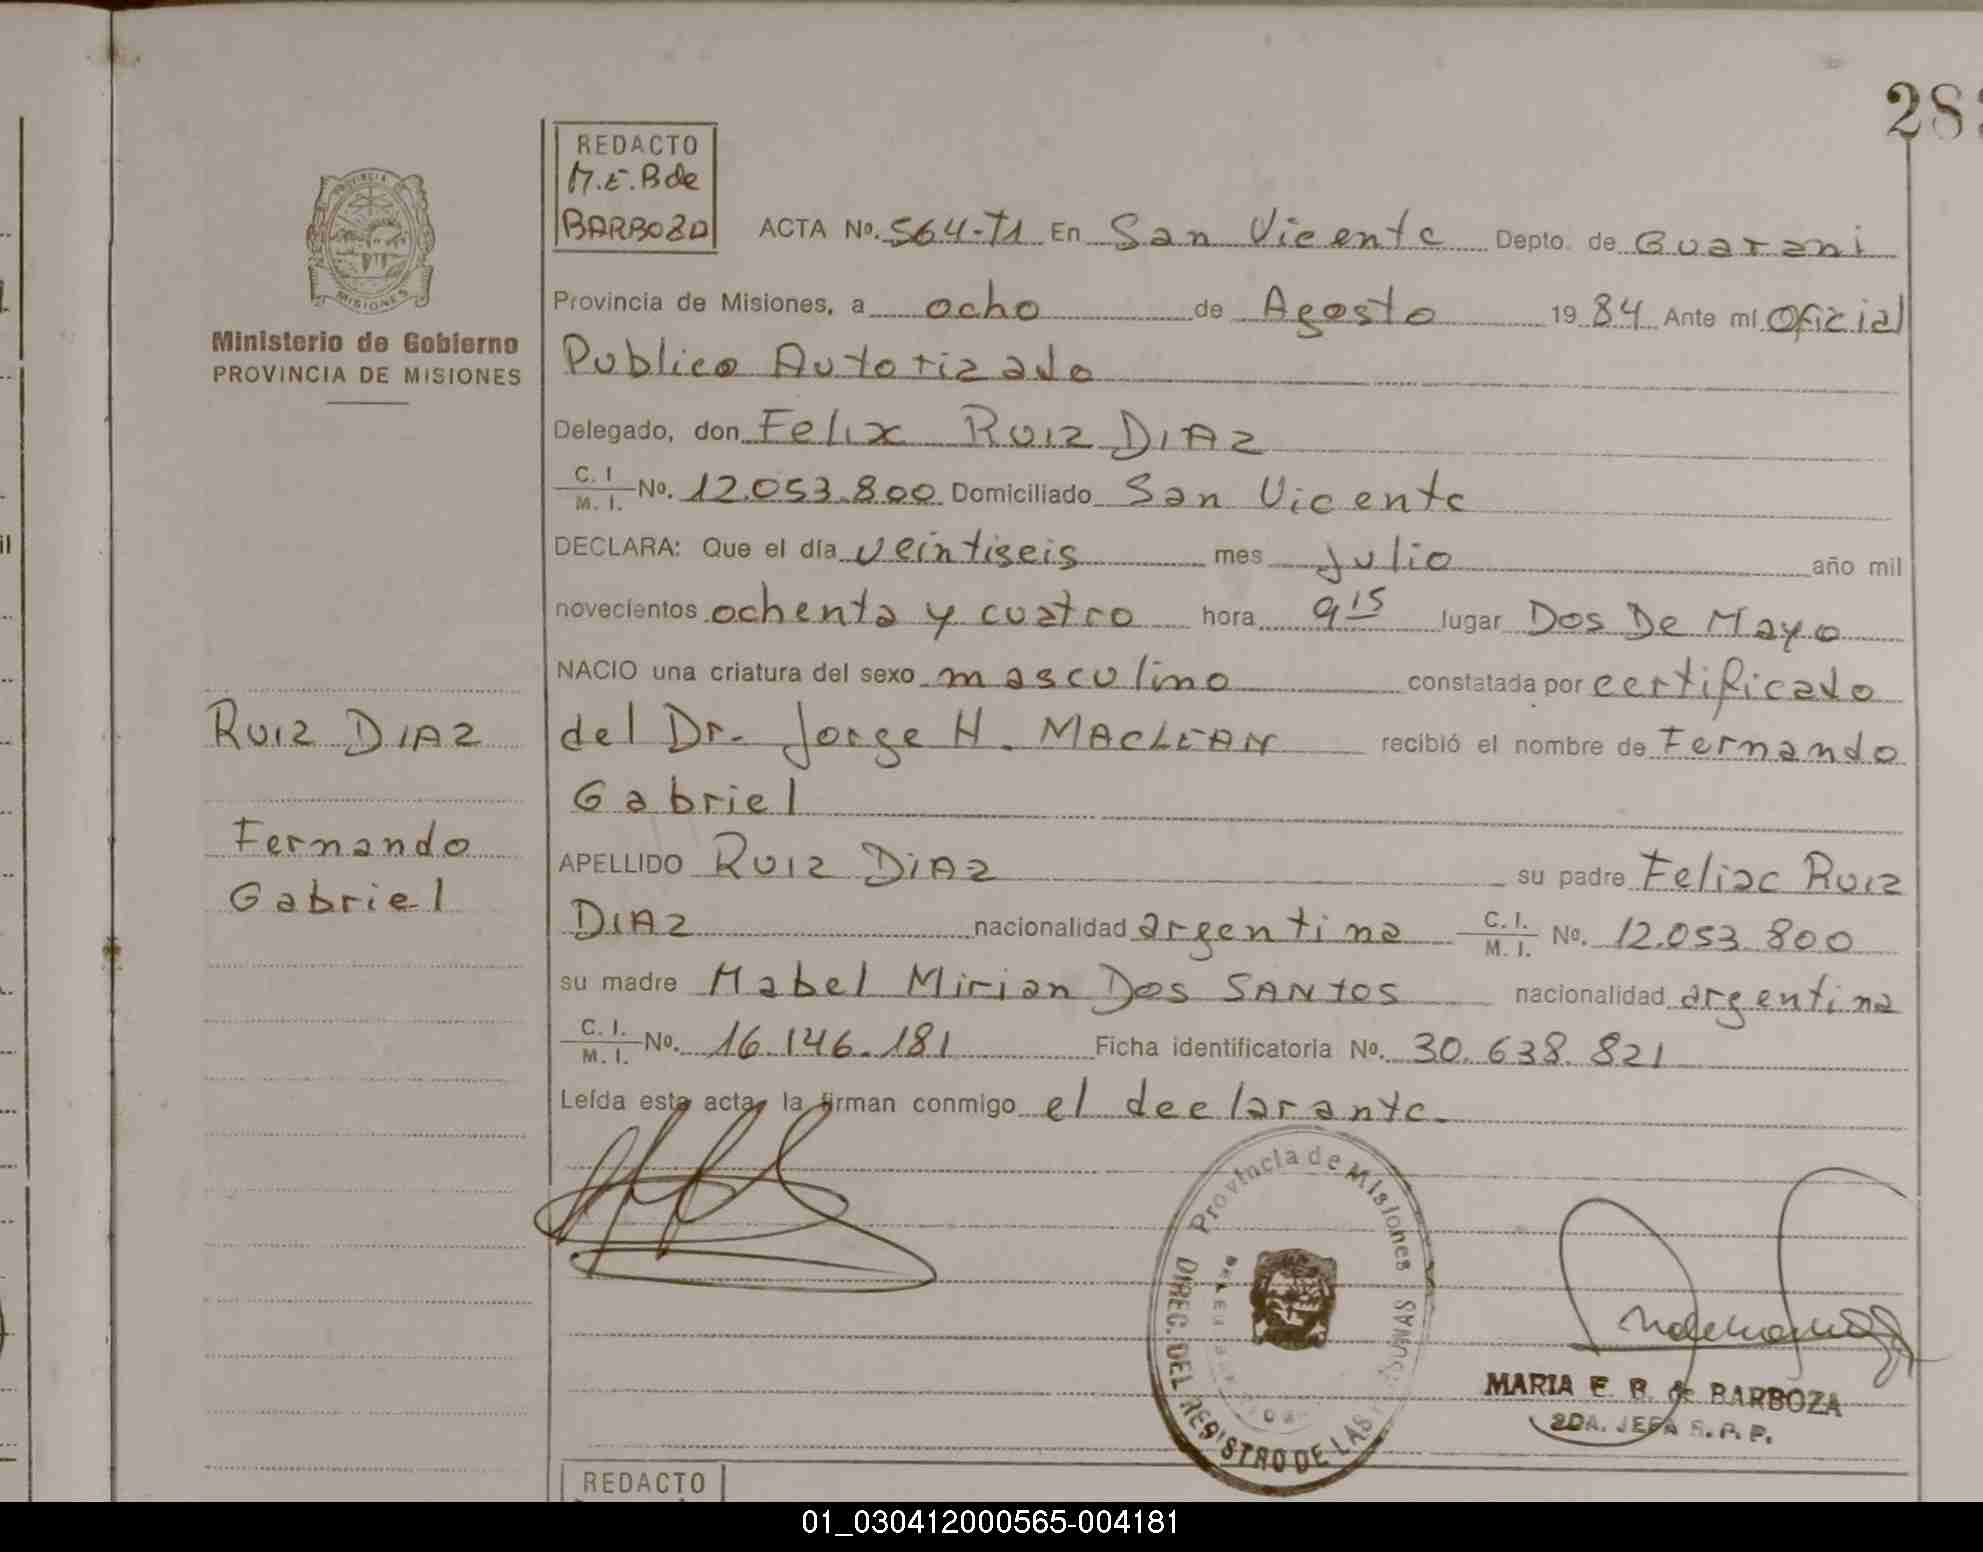 28
REDACTO
M.E.B de
BARBOZA
ACTA No. 564-T1 En San Vicente Depto. de Guarani
PROVINCIA DE
MISIONES
Ministerio de Gobierno
PROVINCIA DE MISIONES
Provincia de Misiones, a ocho de Agosto 1984 Ante mí Oficial
Publico Autorizado
Delegado, don Felix Ruiz DIAZ
C. I. / M. I. No. 12.053.800 Domiciliado San Vicente
DECLARA: Que el día veintiseis mes Julio año mil
novecientos ochenta y cuatro hora 9 15 lugar Dos De Mayo
NACIO una criatura del sexo masculino constatada por certificado
del Dr. Jorge H. MACLEAN recibió el nombre de Fernando
Gabriel
RUIZ DIAZ
Fernando
Gabriel
APELLIDO RUIZ DIAZ su padre Felix Ruiz
DIAZ nacionalidad argentina C. I. / M. I. No. 12.053.800
su madre Mabel Mirian Dos SANTOS nacionalidad argentina
C. I. / M. I. No. 16.146.181 Ficha identificatoria No. 30.638.821
Leída esta acta, la firman conmigo el declarante.
Provincia de Misiones
DIREC. DEL REGISTRO DE LAS
MARIA E. B. de BARBOZA
2DA. JEFA R.P.P.
REDACTO
01_030412000565-004181